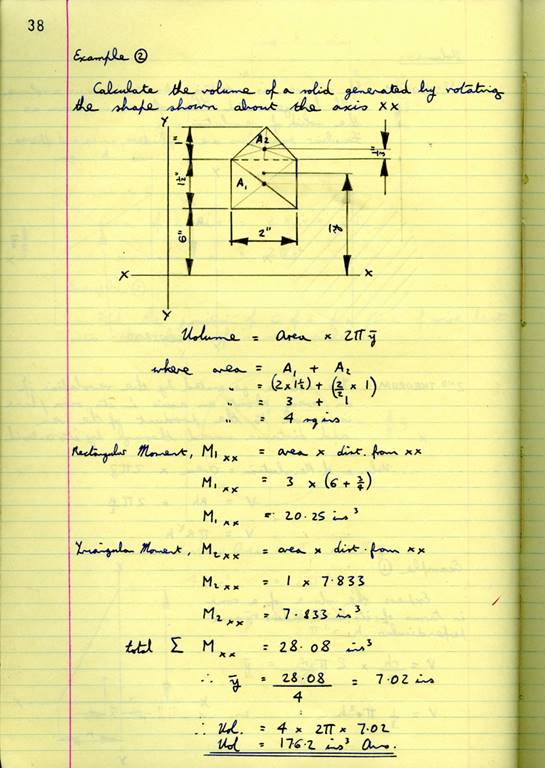 38
Example ②
Calculate the volume of a solid generated by rotating
the shape shown about the axis xx
Y
1"
A2
1/3"
1½"
A1
6"
2"
ȳ
X
X
Y
Volume = area × 2π ȳ
where area = A1 + A2
" = (2 × 1½) + (2/2 × 1)
" = 3 + 1
" = 4 sq ins
Rectangular Moment, M1xx = area × dist. from xx
M1xx = 3 × (6 + 3/4)
M1xx = 20.25 ins³
Triangular Moment, M2xx = area × dist. from xx
M2xx = 1 × 7.833
M2xx = 7.833 ins³
total Σ Mxx = 28.08 ins³
∴ ȳ = 28.08/4 = 7.02 ins
∴ Vol. = 4 × 2π × 7.02
Vol = 176.2 ins³ Ans.